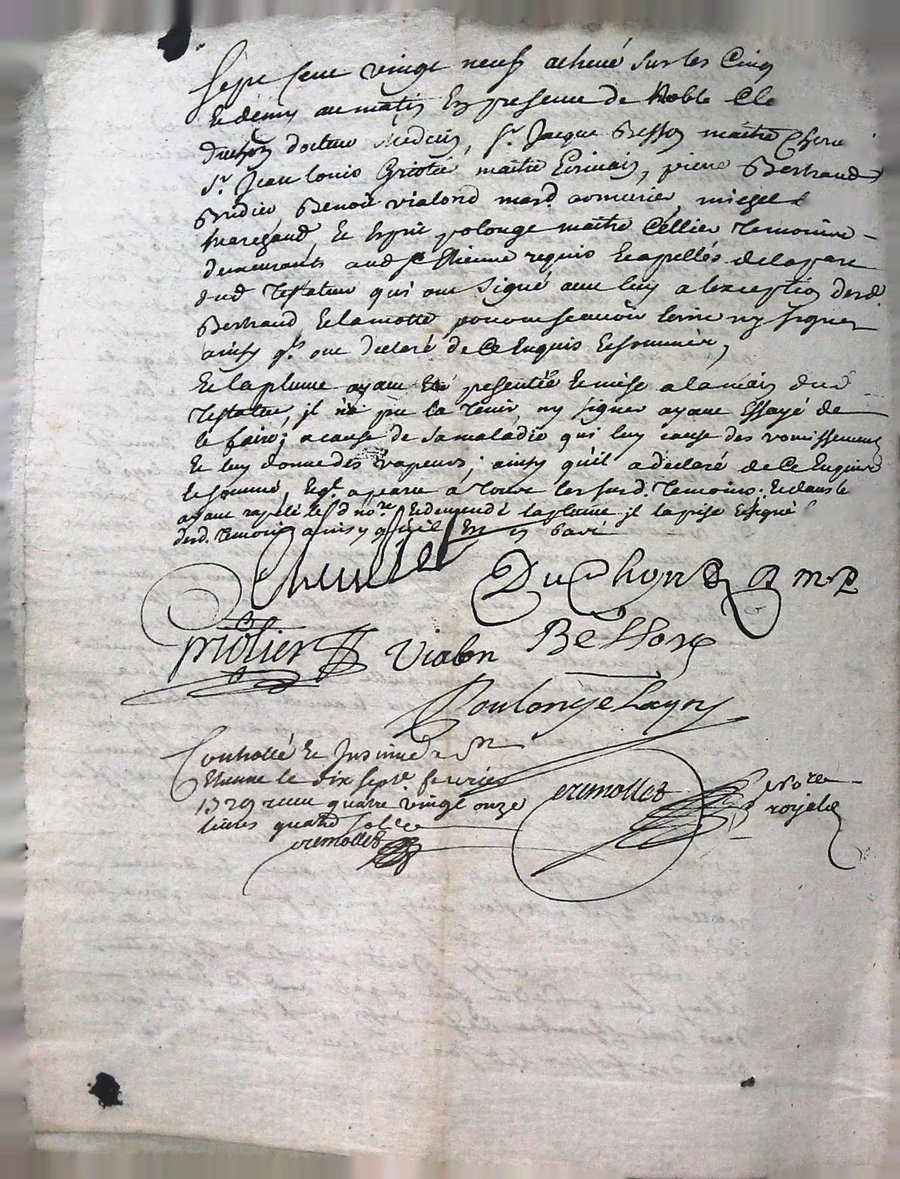 Sept cent vingt neuf acheué sur les Cinq
Et demy au matin En presence de Noble Cle
Duchon docteur Medecin, Sr. Jacque Besson maitre Chiru
Sr. Jean Louis Griotié maitre Ecriuain, pierre Bertrand
Benoit vialond mard. armurier,
Et Esprit polonge maitre Cellier Temoins
demeurants aud. St. Etienne requis Et apellés de la part
dud Testateur qui ont signé auec luy a lexception desd.
Bertrand, Et lamotte pour ne scauoir Ecrire ny signer
ainsy q. ont declaré de Ce Enquis Et sommés,
Et la plume ayant Eté presentée Et mise a la main dud
Testateur, il n'a pu la Tenir, ny signer ayant Essayé de
le faire, a cause de sa maladie qui luy cause des vomissements
Et luy donne des vapeurs; ainsy qu'il a declaré de Ce Enquis
Et sommé, Et ql. aparu à Tous les susd. Temoins. Et dans le
ayant rapelé led. nore. Et demandé la plume il la prise Et signé
desd. Temoins ainsy qu'il
DuChon D m
Griotier Vialon Besson
Poulonge
Controllé Et Insinué a St
Etienne le dix sept feurier
1729 receu quatre vingt onze
liures quatre sols
cremollet
cremollet nore
royal